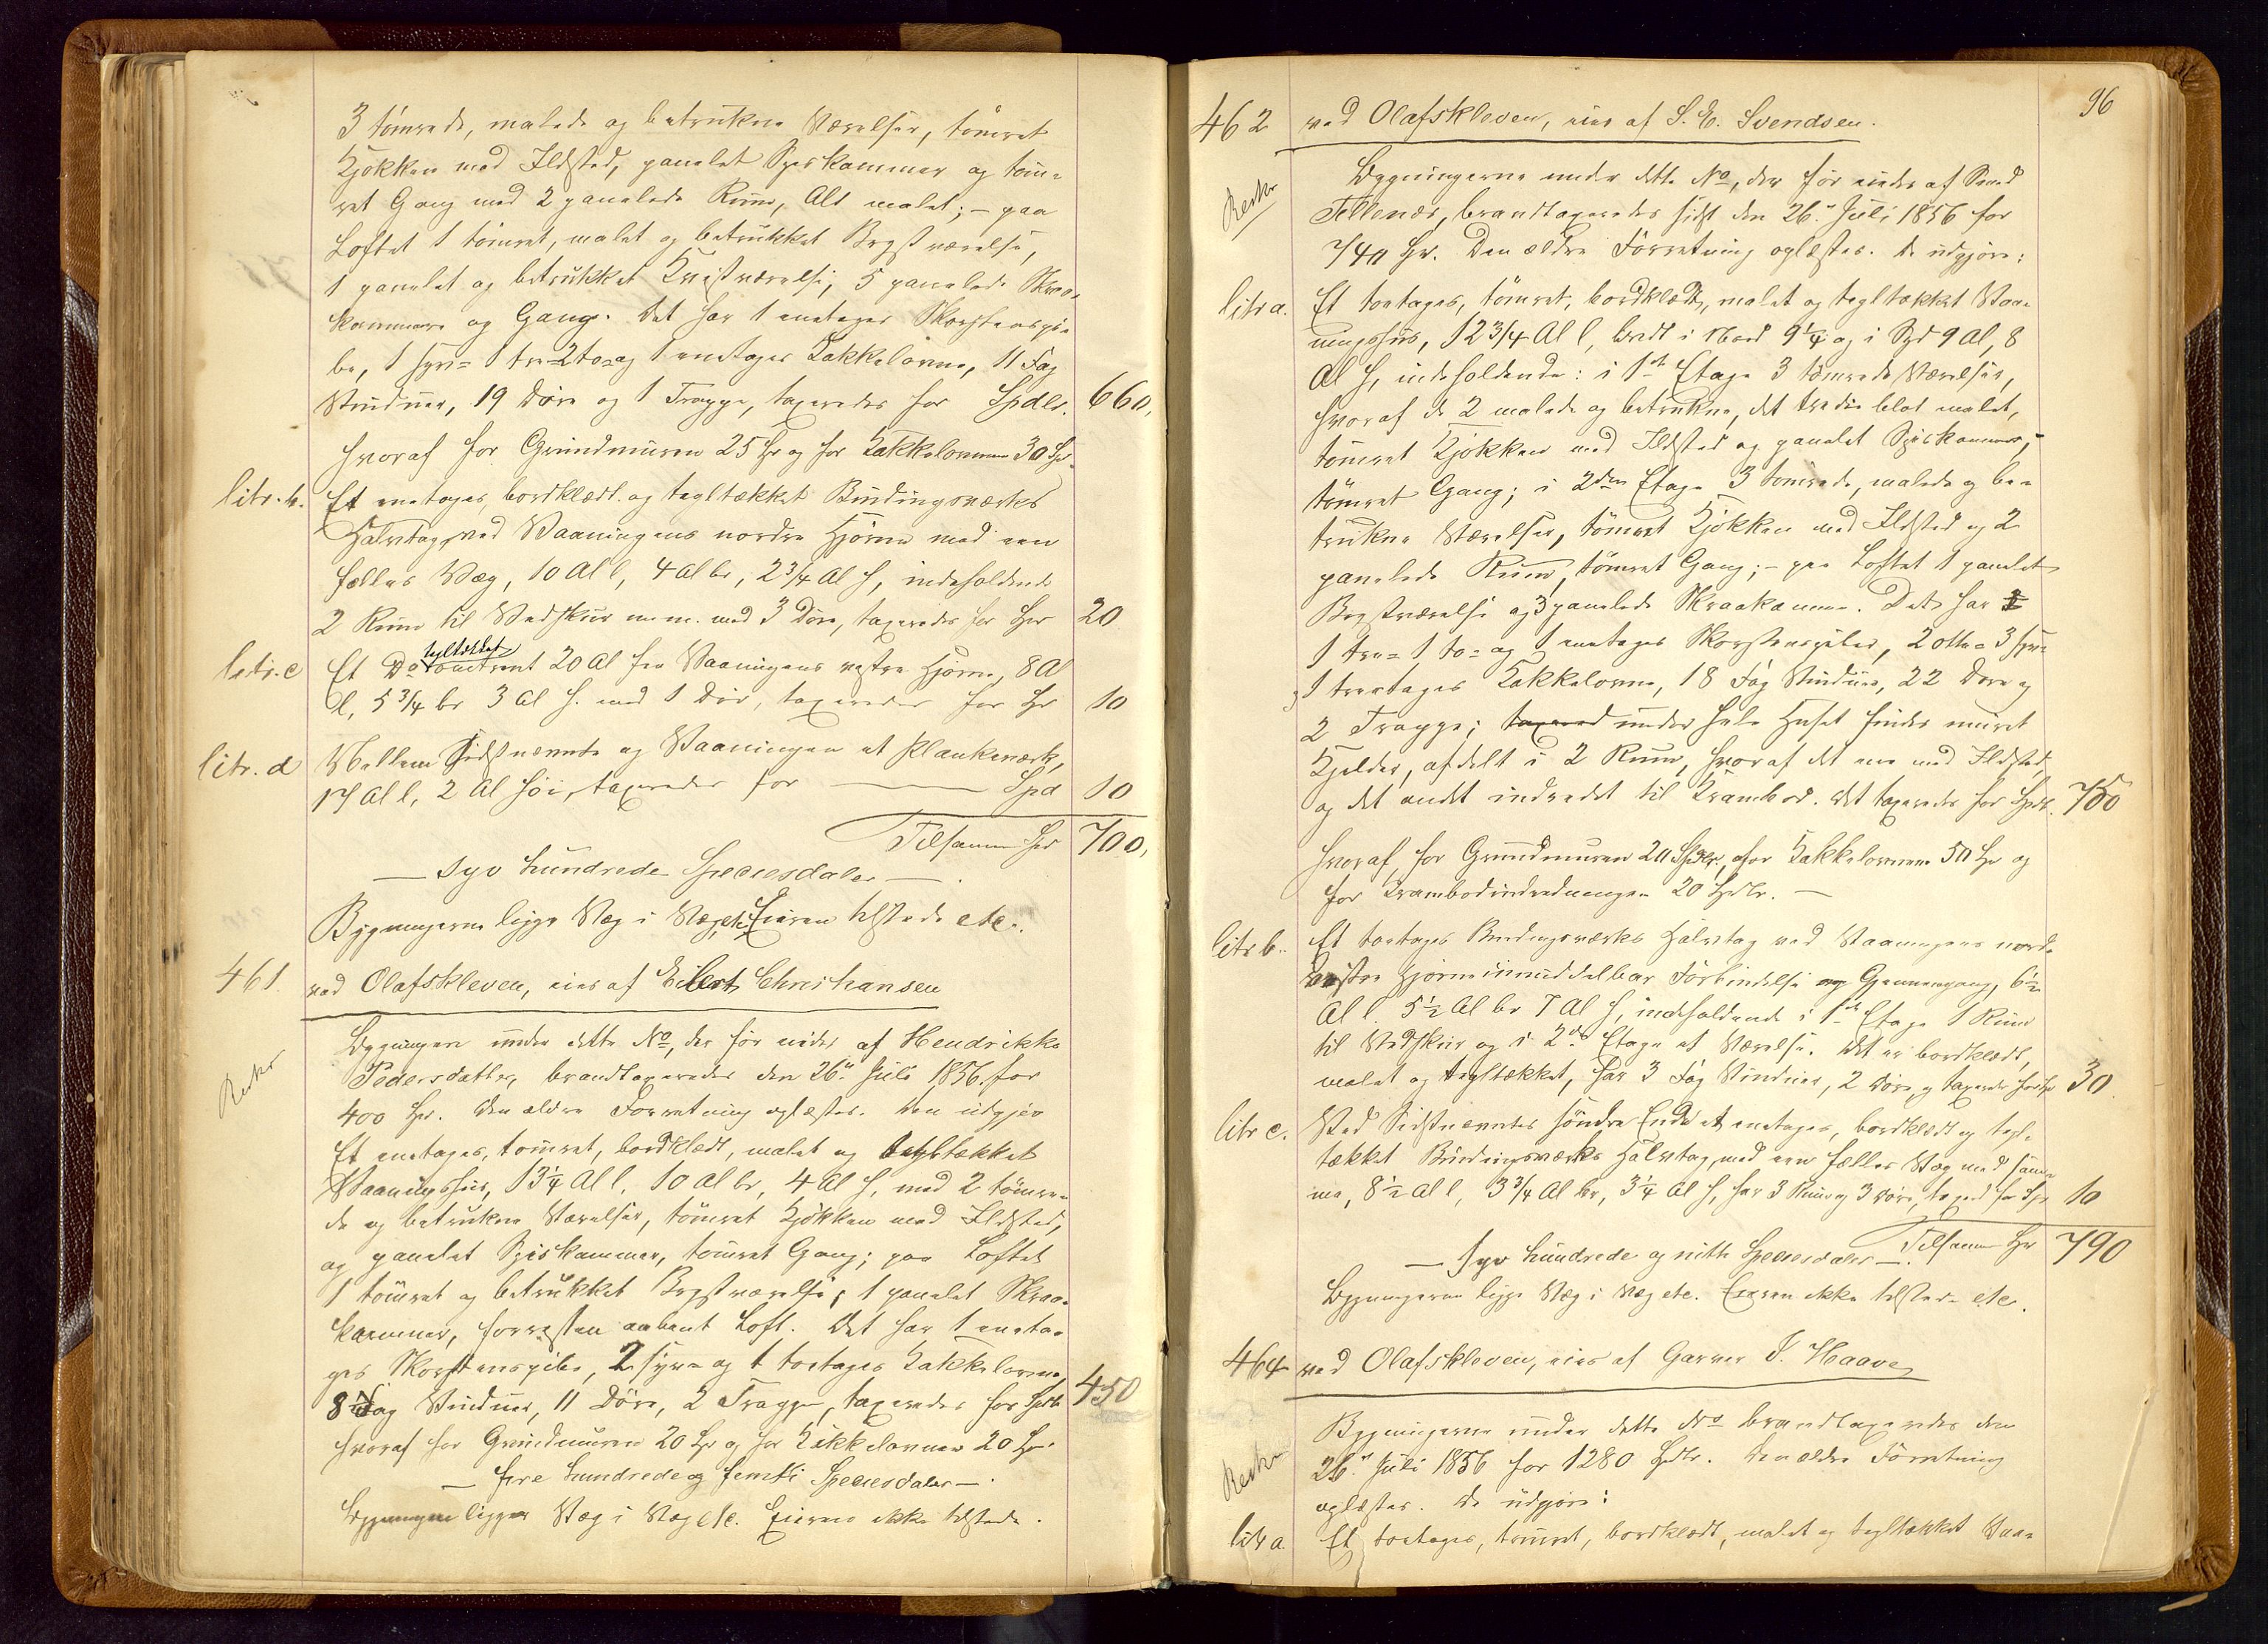 3 tømrede, malede og betrukne Værelser, tømret
Kjøkken med Ildsted, panelet Spiskammer og tøm-
ret Gang med 2 panelede Rum, Alt malet; – paa
Loftet 1 tømret, malet og betrukket Brystværelse,
1 panelet og betrukket Kvistværelse, 5 panelede Skraa-
kammere og Gang. Det har 1 enetages Skorstenspi-
be, 1 fyr= 1 tre= 2 to= og 1 enetages Kakkelovne, 11 Fag
Vinduer, 19 Døre og 1 Trappe, taxeredes for Spdlr. 660,
hvoraf for Grundmuren 25 Spd og for Kakkelovnene 30 Spd.
litr. b. Et enetages, bordklædt og tegltækket Bindingsværks
Halvtag ved Vaaningens nordre Hjørne med een
fælles Væg, 10 Al l, 4 Al br, 2 3/4 Al h, indeholdende
2 Rum til Vedskur m.m. med 3 Døre, taxeredes for Spd 20
tegltækket
litr. c Et Do omtrent 20 Al fra Vaaningens vestre Hjørne, 8 Al
l, 5 3/4 br 3 Al h. med 1 Dør, taxeredes for Spd 10
litr. d Mellem Sidstnævnte og Vaaningen et Plankeværk,
17 Al l, 2 Al høi, taxeredes for — Spd 10
Tilsammen Spd 700,
— Syv hundrede Speciesdaler —.
Bygningerne ligge Væg i Væg etc. Eieren tilstede etc.
461 ved Olafskleven, eies af Eilert Christiansen
Bygningen under dette No, der før eiedes af Hendrikke
Pedersdatter, brandtaxeredes den 26de Juli 1856 for
400 Spd. Den ældre Forretning oplæstes. Den udgjør
Et enetages, tømret, bordklædt, malet og tegltækket
Vaaningshuus, 13 1/4 Al l. 10 Al br, 4 Al h, med 2 tømre-
de og betrukne Værelser, tømret Kjøkken med Ildsted,
og panelet Spiskammer, tømret Gang; paa Loftet
1 tømret og betrukket Brystværelse, 1 panelet Skraa-
kammer, forresten aabent Loft. Det har 1 eneta-
ges Skorstenspibe, 2 fyr= og 1 toetages Kakkelovne,
8 1/2 Fag Vinduer, 11 Døre, 2 Trapper, taxeredes for Spdlr 450
hvoraf for Grundmuren 20 Spd og for Kakkelovnene 20 Spd.
— fire hundrede og femti Speciesdaler —.
Bygningen ligger Væg i Væg etc. Eieren ikke tilstede.
96
462 ved Olafskleven, eies af S. E. Svendsen.
Bygningerne under dette No, der før eiedes af
Tellenæs, brandtaxeredes sidst den 26de Juli 1856 for
740 Spd. Den ældre Forretning oplæstes. De udgjøre:
litr a. Et toetages, tømret, bordklædt, malet og tegltækket Vaa-
ningshus, 12 3/4 Al l, bredt i Nord 9 1/4 og i Syd 9 Al, 8
Al h, indeholdende: i 1ste Etage 3 tømrede Værelser,
hvoraf de 2 malede og betrukne, det tredie blot malet,
tømret Kjøkken med Ildsted og panelet Spiskammer,
tømret Gang; i 2den Etage 3 tømrede, malede og be-
trukne Værelser, tømret Kjøkken med Ildsted og 2
panelede Rum, tømret Gang; – paa Loftet 1 panelet
Brystværelse og 3 panelede Skraakamre. Det har
1 tre= 1 to= og 1 enetages Skorstenspiber, 2 otte= 3 fyr=
og 1 treetages Kakkelovne, 18 Fag Vinduer, 22 Døre og
2 Trapper; taxered under hele Huset findes muret
Kjelder, afdelt i 2 Rum, hvoraf det ene med Ildsted,
og det andet indredet til Krambod. Det taxeredes for Spdlr. 750
hvoraf for Grundmuren 20 Spdlr, for Kakkelovnene 50 Spd og
for Krambodindredningen 20 Spdlr. —
litr b. Et toetages Bindingsværks Halvtag ved Vaaningens nord-
vestre Hjørne i umiddelbar Forbindelse og Gjennemgang, 6 1/2
Al l. 5 1/2 Al br 7 Al h, indeholdende i 1ste Etage 1 Rum
til Vedskur og i 2de Etage et Værelse. Det er bordklædt,
malet og tegltækket, har 3 Fag Vinduer, 2 Døre, og taxeredes for Spd 30
litr c. Ved Sidstnævntes søndre Ende et enetages, bordklædt og tegl-
tækket Bindingsværks Halvtag, med een fælles Væg med sam-
me, 8 1/2 Al l, 3 3/4 Al br, 3 1/4 Al h, har 3 Rum og 3 Døre, taxered for Spd 10
Tilsammen Spd 790
— Syv hundrede og nitti Speciesdaler —.
Bygningerne ligge Væg i Væg etc. Eieren ikke tilstede etc.
464 ved Olafskleven, eies af Garver S. Haave
Bygningerne under dette No brandtaxeredes den
26de Juli 1856 for 1280 Spdlr. Den ældre Forretning
oplæstes. De udgjøre:
litr a. Et toetages, tømret, bordklædt, malet og tegltækket Vaa-